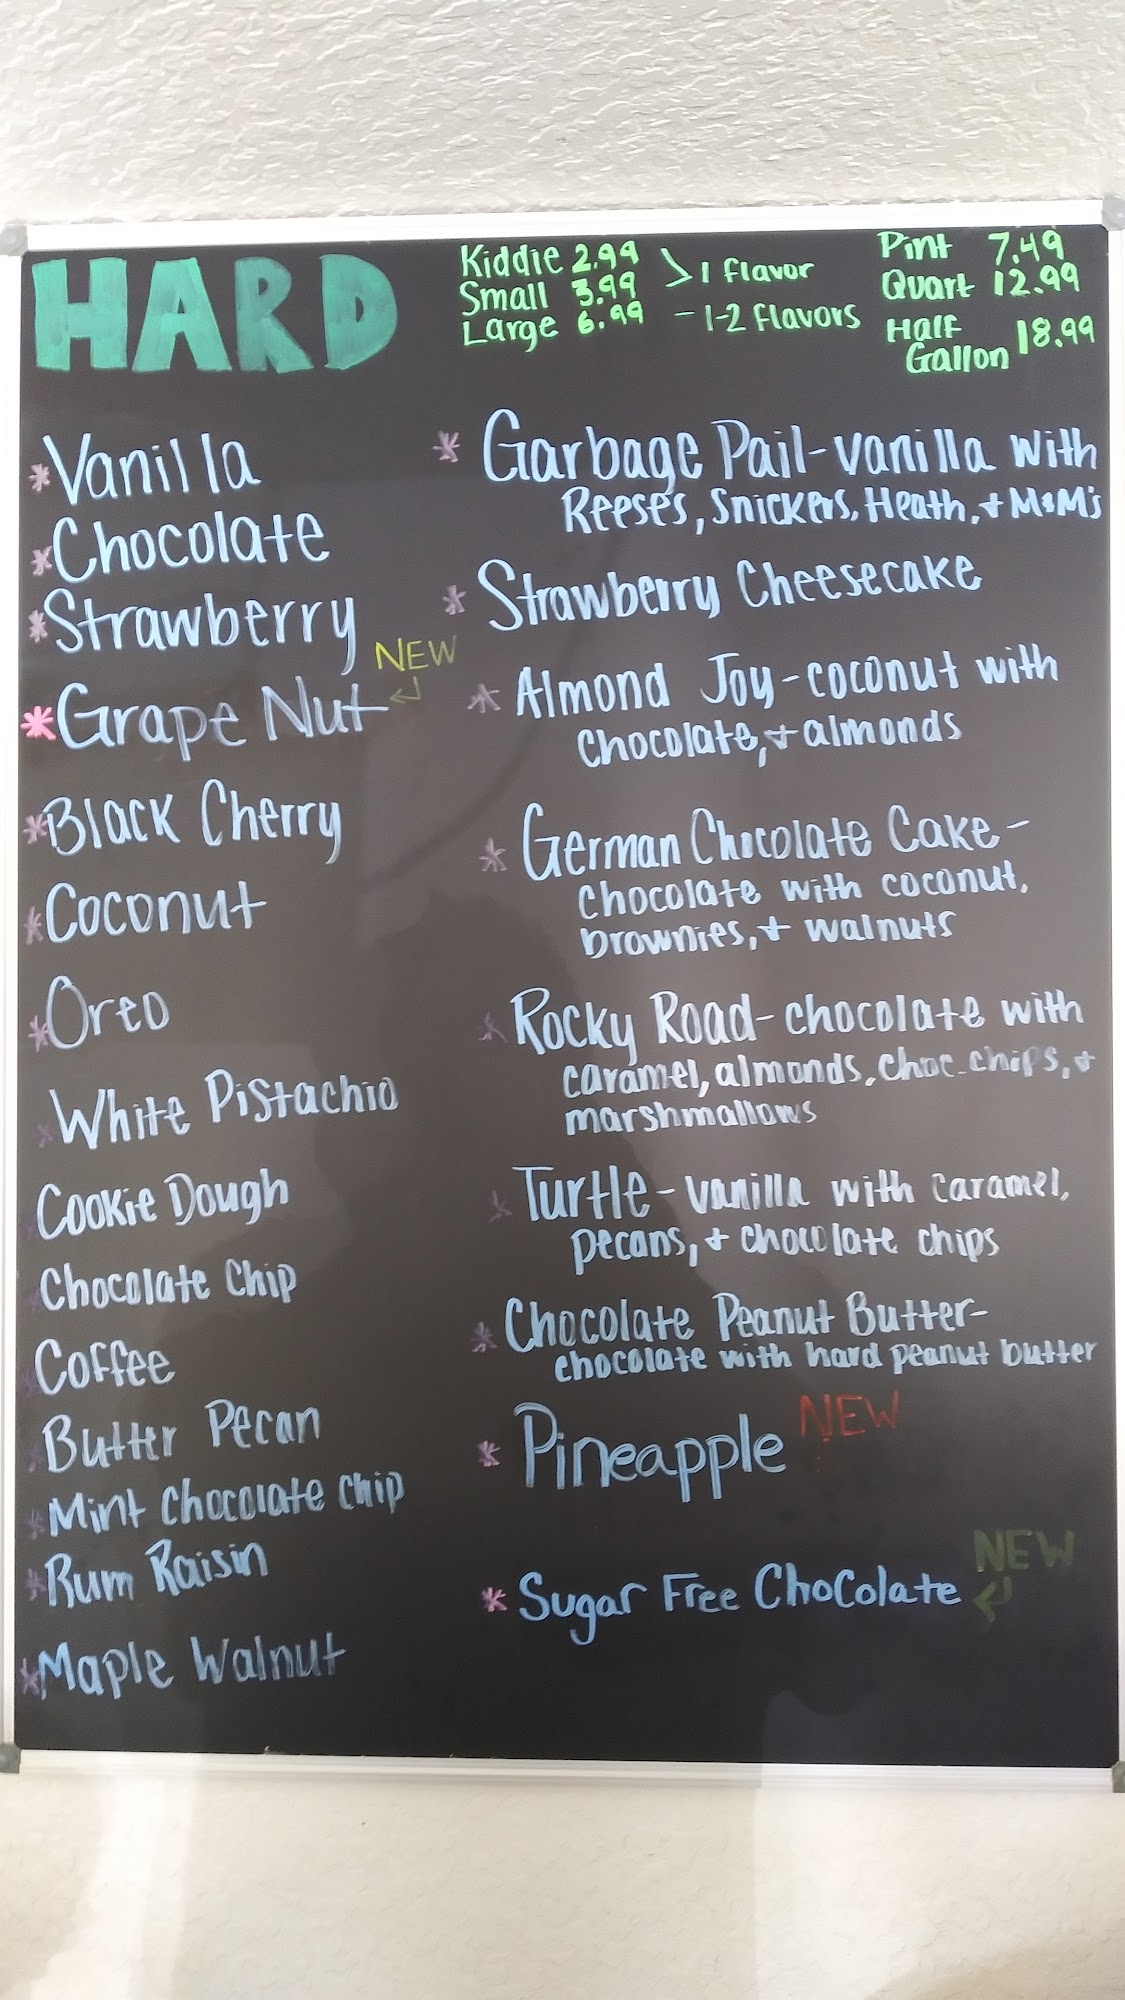 HARD
Kiddie 2.99
Small 3.99 > 1 flavor
Large 6.99 - 1-2 flavors
Pint 7.49
Quart 12.99
Half
Gallon 18.99
* Vanilla
* Chocolate
* Strawberry
NEW
* Grape Nut
* Black Cherry
* Coconut
* Oreo
* White Pistachio
Cookie Dough
* Chocolate Chip
* Coffee
* Butter Pecan
* Mint Chocolate Chip
* Rum Raisin
* Maple Walnut
* Garbage Pail - vanilla with
Reese's, Snickers, Heath, + M&M's
* Strawberry Cheesecake
* Almond Joy - coconut with
chocolate, + almonds
* German Chocolate Cake -
chocolate with coconut,
brownies, + walnuts
* Rocky Road - chocolate with
caramel, almonds, choc. chips, +
marshmallows
* Turtle - vanilla with caramel,
pecans, + chocolate chips
* Chocolate Peanut Butter -
chocolate with hard peanut butter
* Pineapple NEW
NEW
* Sugar Free Chocolate